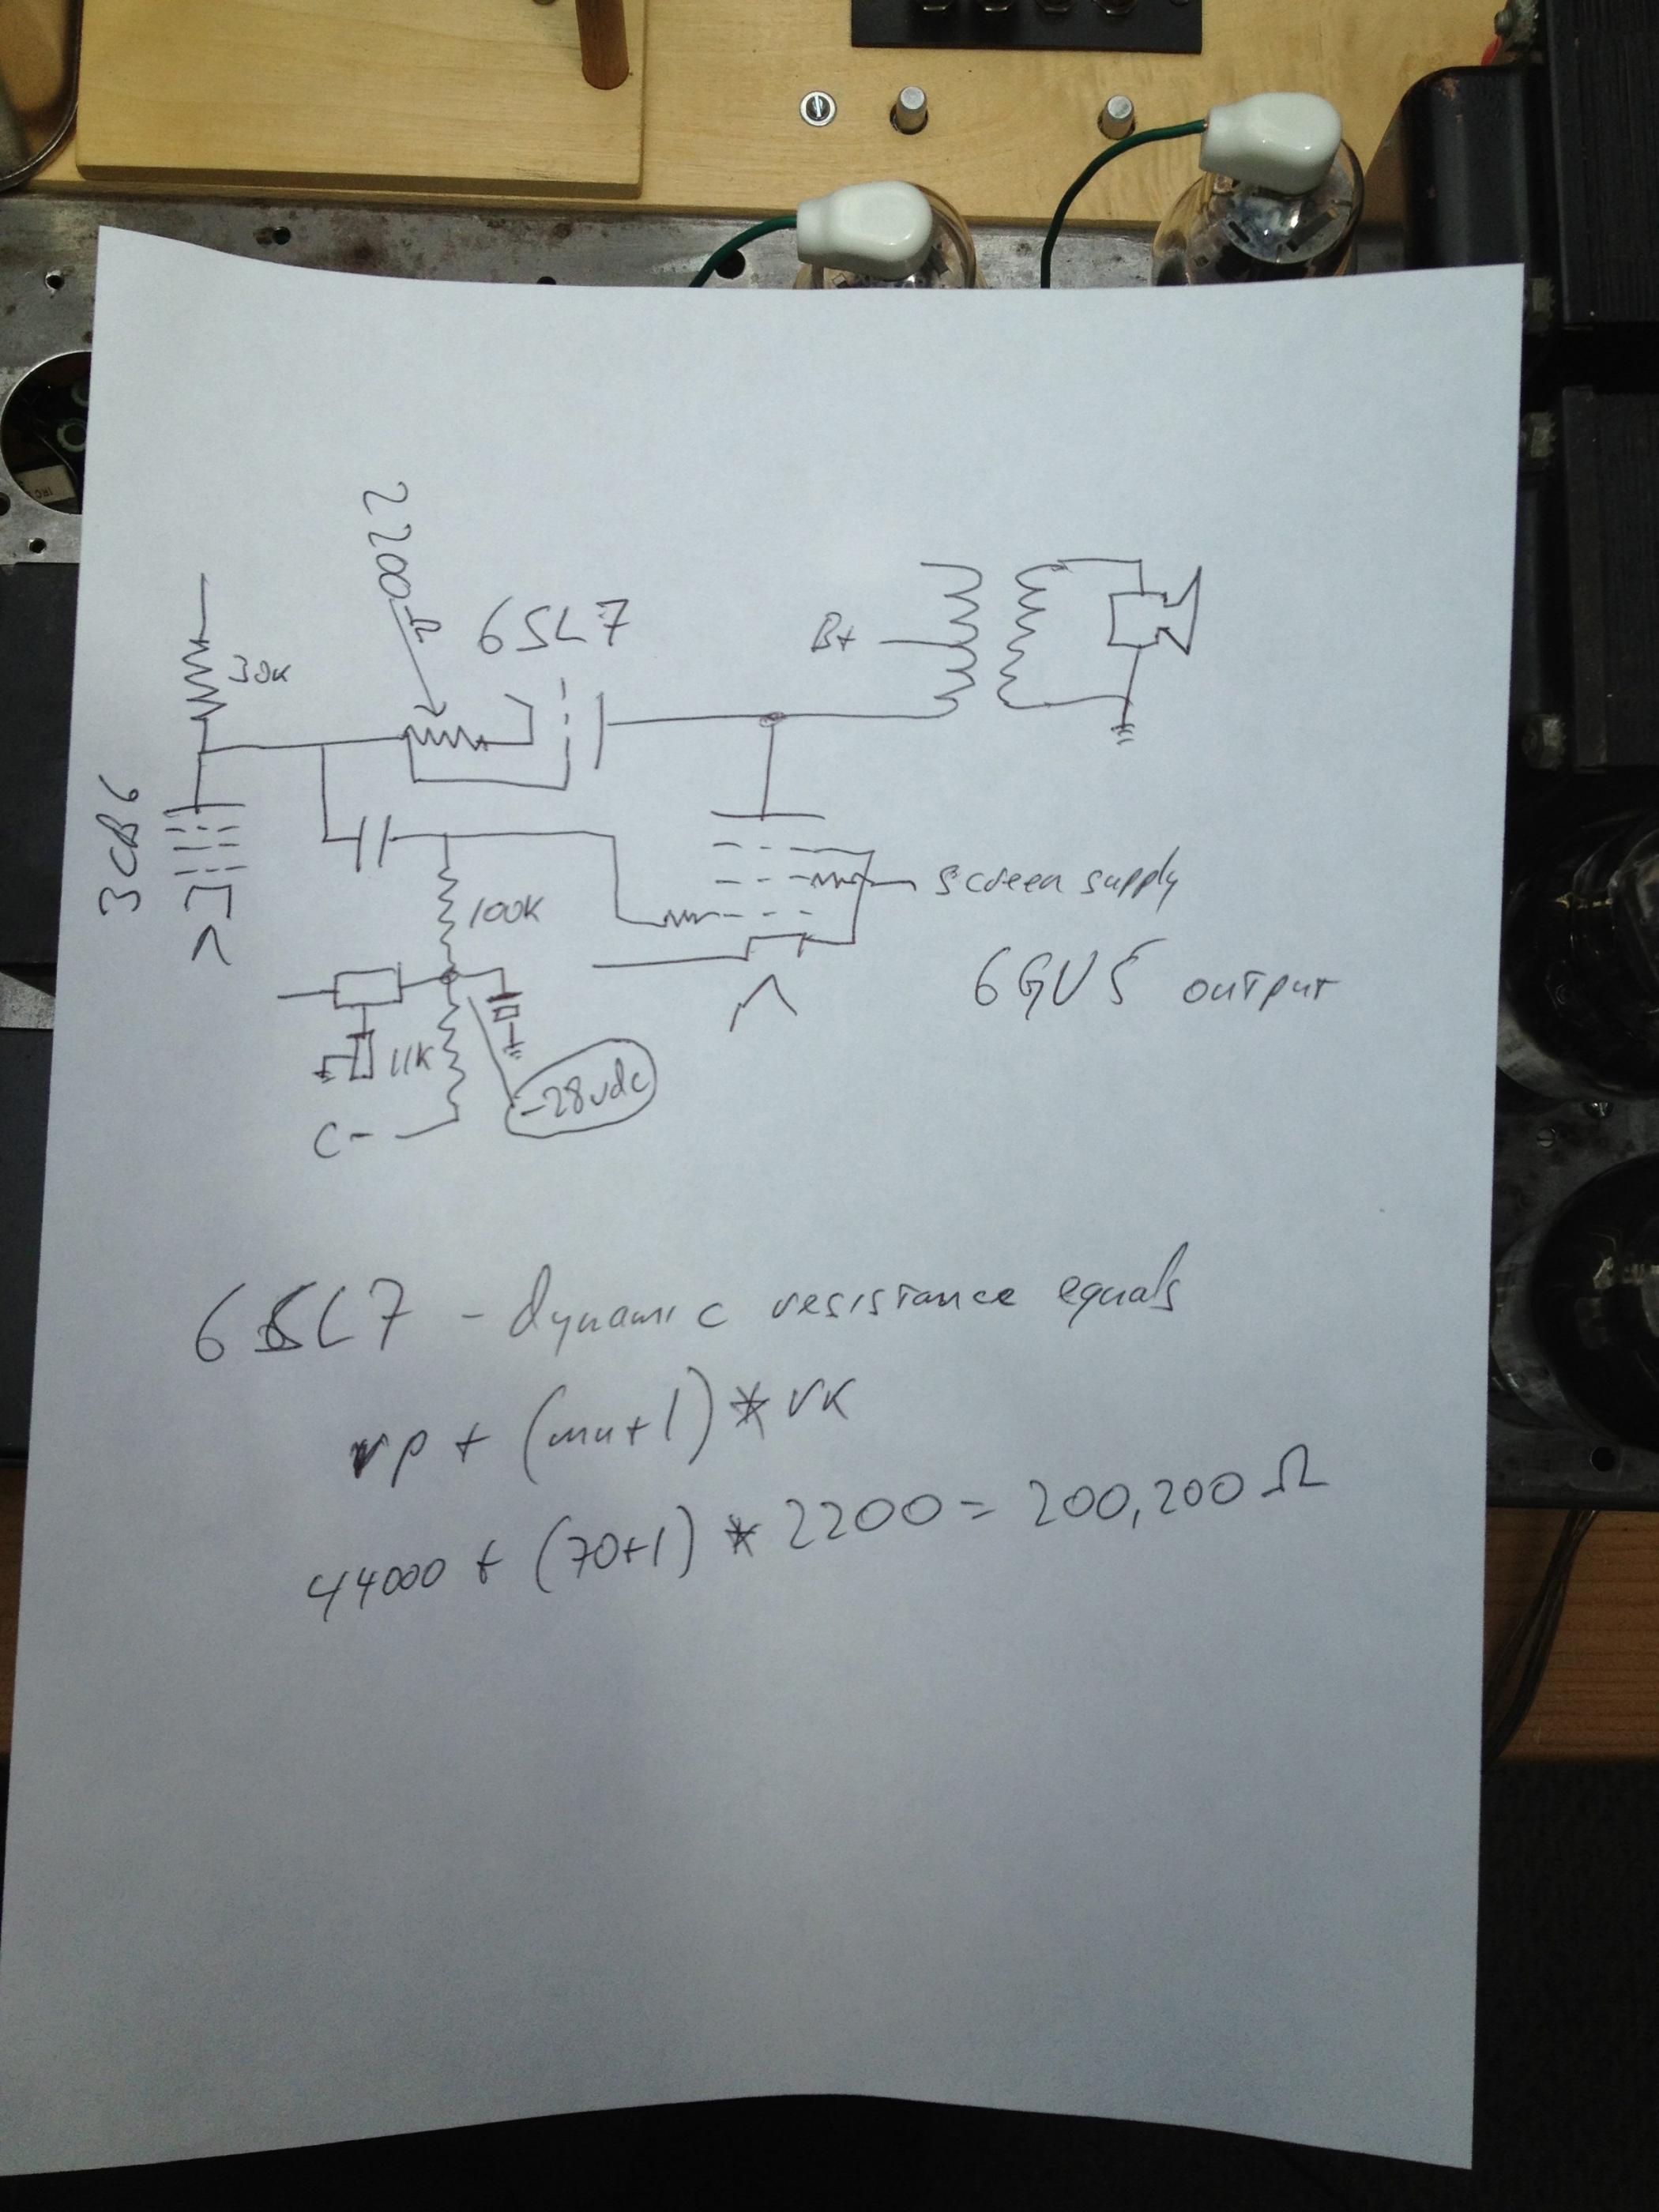 2200Ω
6SL7
30K
B+
3CB6
100K
screen supply
6GV5 output
11K
-28vdc
C-
6SL7 - dynamic resistance equals
rp + (mu+1) * rk
44000 + (70+1) * 2200 = 200,200 Ω